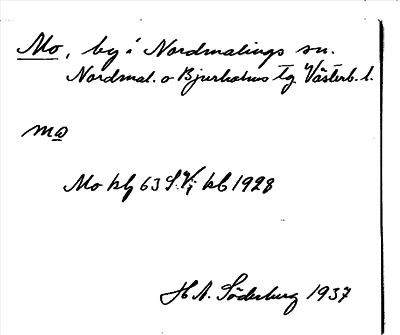 Mo, by i Nordmalings sn.
Nordmal. o Bjurholms tg. Västerb. l.
mω
Mo kbg 63 S.V.; kb 1928
H. A. Söderberg 1937